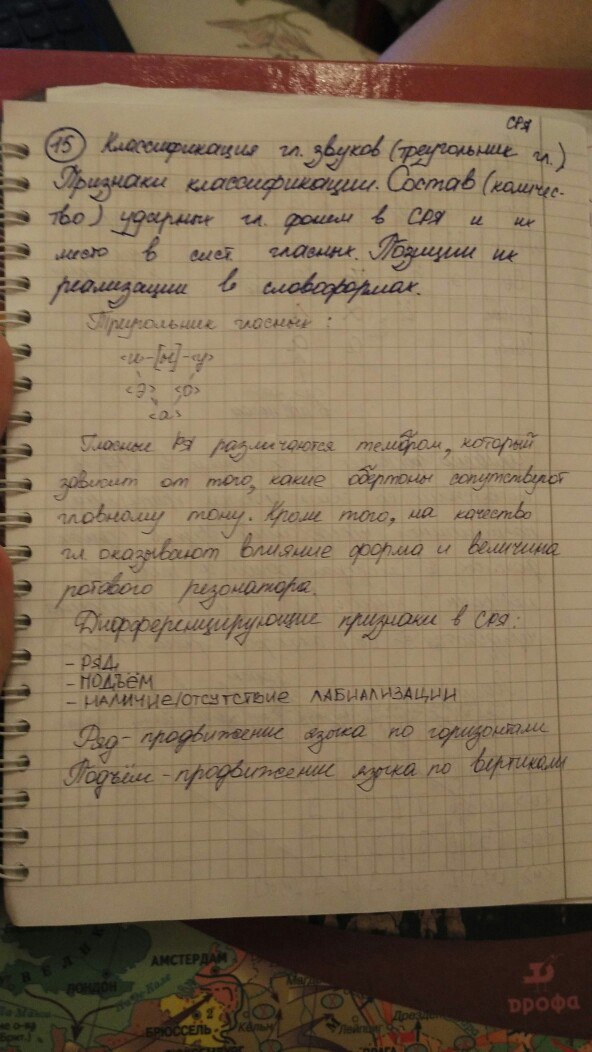 СРЯ
15 Классификация гл. звуков (треугольник гл.)
Признаки классификации. Состав (количес-
тво) ударных гл. фонем в СРЯ и их
место в сист. гласных. Позиции их
реализации в словоформах.
Треугольник гласных:
<и>-[ы]-<у>
<э> <о>
<а>
Гласные РЯ различаются тембром, который
зависит от того, какие обертоны сопутствуют
главному тону. Кроме того, на качество
гл. оказывают влияние форма и величина
ротового резонатора.
Дифференцирующие признаки в СРЯ:
- РЯД
- ПОДЪЁМ
- НАЛИЧИЕ/ОТСУТСТВИЕ ЛАБИАЛИЗАЦИИ
Ряд - продвижение языка по горизонтали
Подъём - продвижение языка по вертикали
АМСТЕРДАМ
ЛОНДОН
БРЮССЕЛЬ
Кёльн
Лейпциг
Дрезден
ПРАГА
дрофа